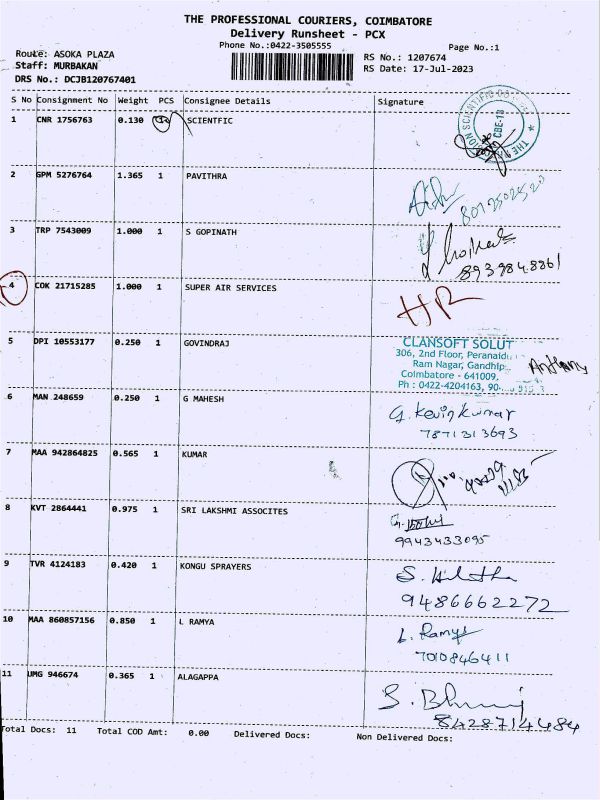 THE PROFESSIONAL COURIERS, COIMBATORE
Delivery Runsheet - PCX
Phone No.:0422-3505555
Page No.:1
Route: ASOKA PLAZA
RS No.: 1207674
Staff: MURBAKAN
RS Date: 17-Jul-2023
DRS No.: DCJB120767401
S No Consignment No Weight PCS Consignee Details Signature
1 CNR 1756763 0.130 SCIENTFIC
SCIENTIFIC CBE-12 THE
2 GPM 5276764 1.365 1 PAVITHRA
3 TRP 7543009 1.000 1 S GOPINATH
8939848861
4 COK 21715285 1.000 1 SUPER AIR SERVICES
HR
5 DPI 10553177 0.250 1 GOVINDRAJ
CLANSOFT SOLUT
306, 2nd Floor, Peranaidu
Ram Nagar, Gandhip
Coimbatore - 641009,
Ph : 0422-4204163, 90
Anthony
6 MAN 248659 0.250 1 G MAHESH
G. Kevin Kumar
7871313693
7 MAA 942864825 0.565 1 KUMAR
8 KVT 2864441 0.975 1 SRI LAKSHMI ASSOCITES
9943433095
9 TVR 4124183 0.420 1 KONGU SPRAYERS
9486662272
10 MAA 860857156 0.850 1 L RAMYA
L. Ramya
7010846411
11 UMG 946674 0.365 1 ALAGAPPA
8428714484
Total Docs: 11 Total COD Amt: 0.00 Delivered Docs: Non Delivered Docs: